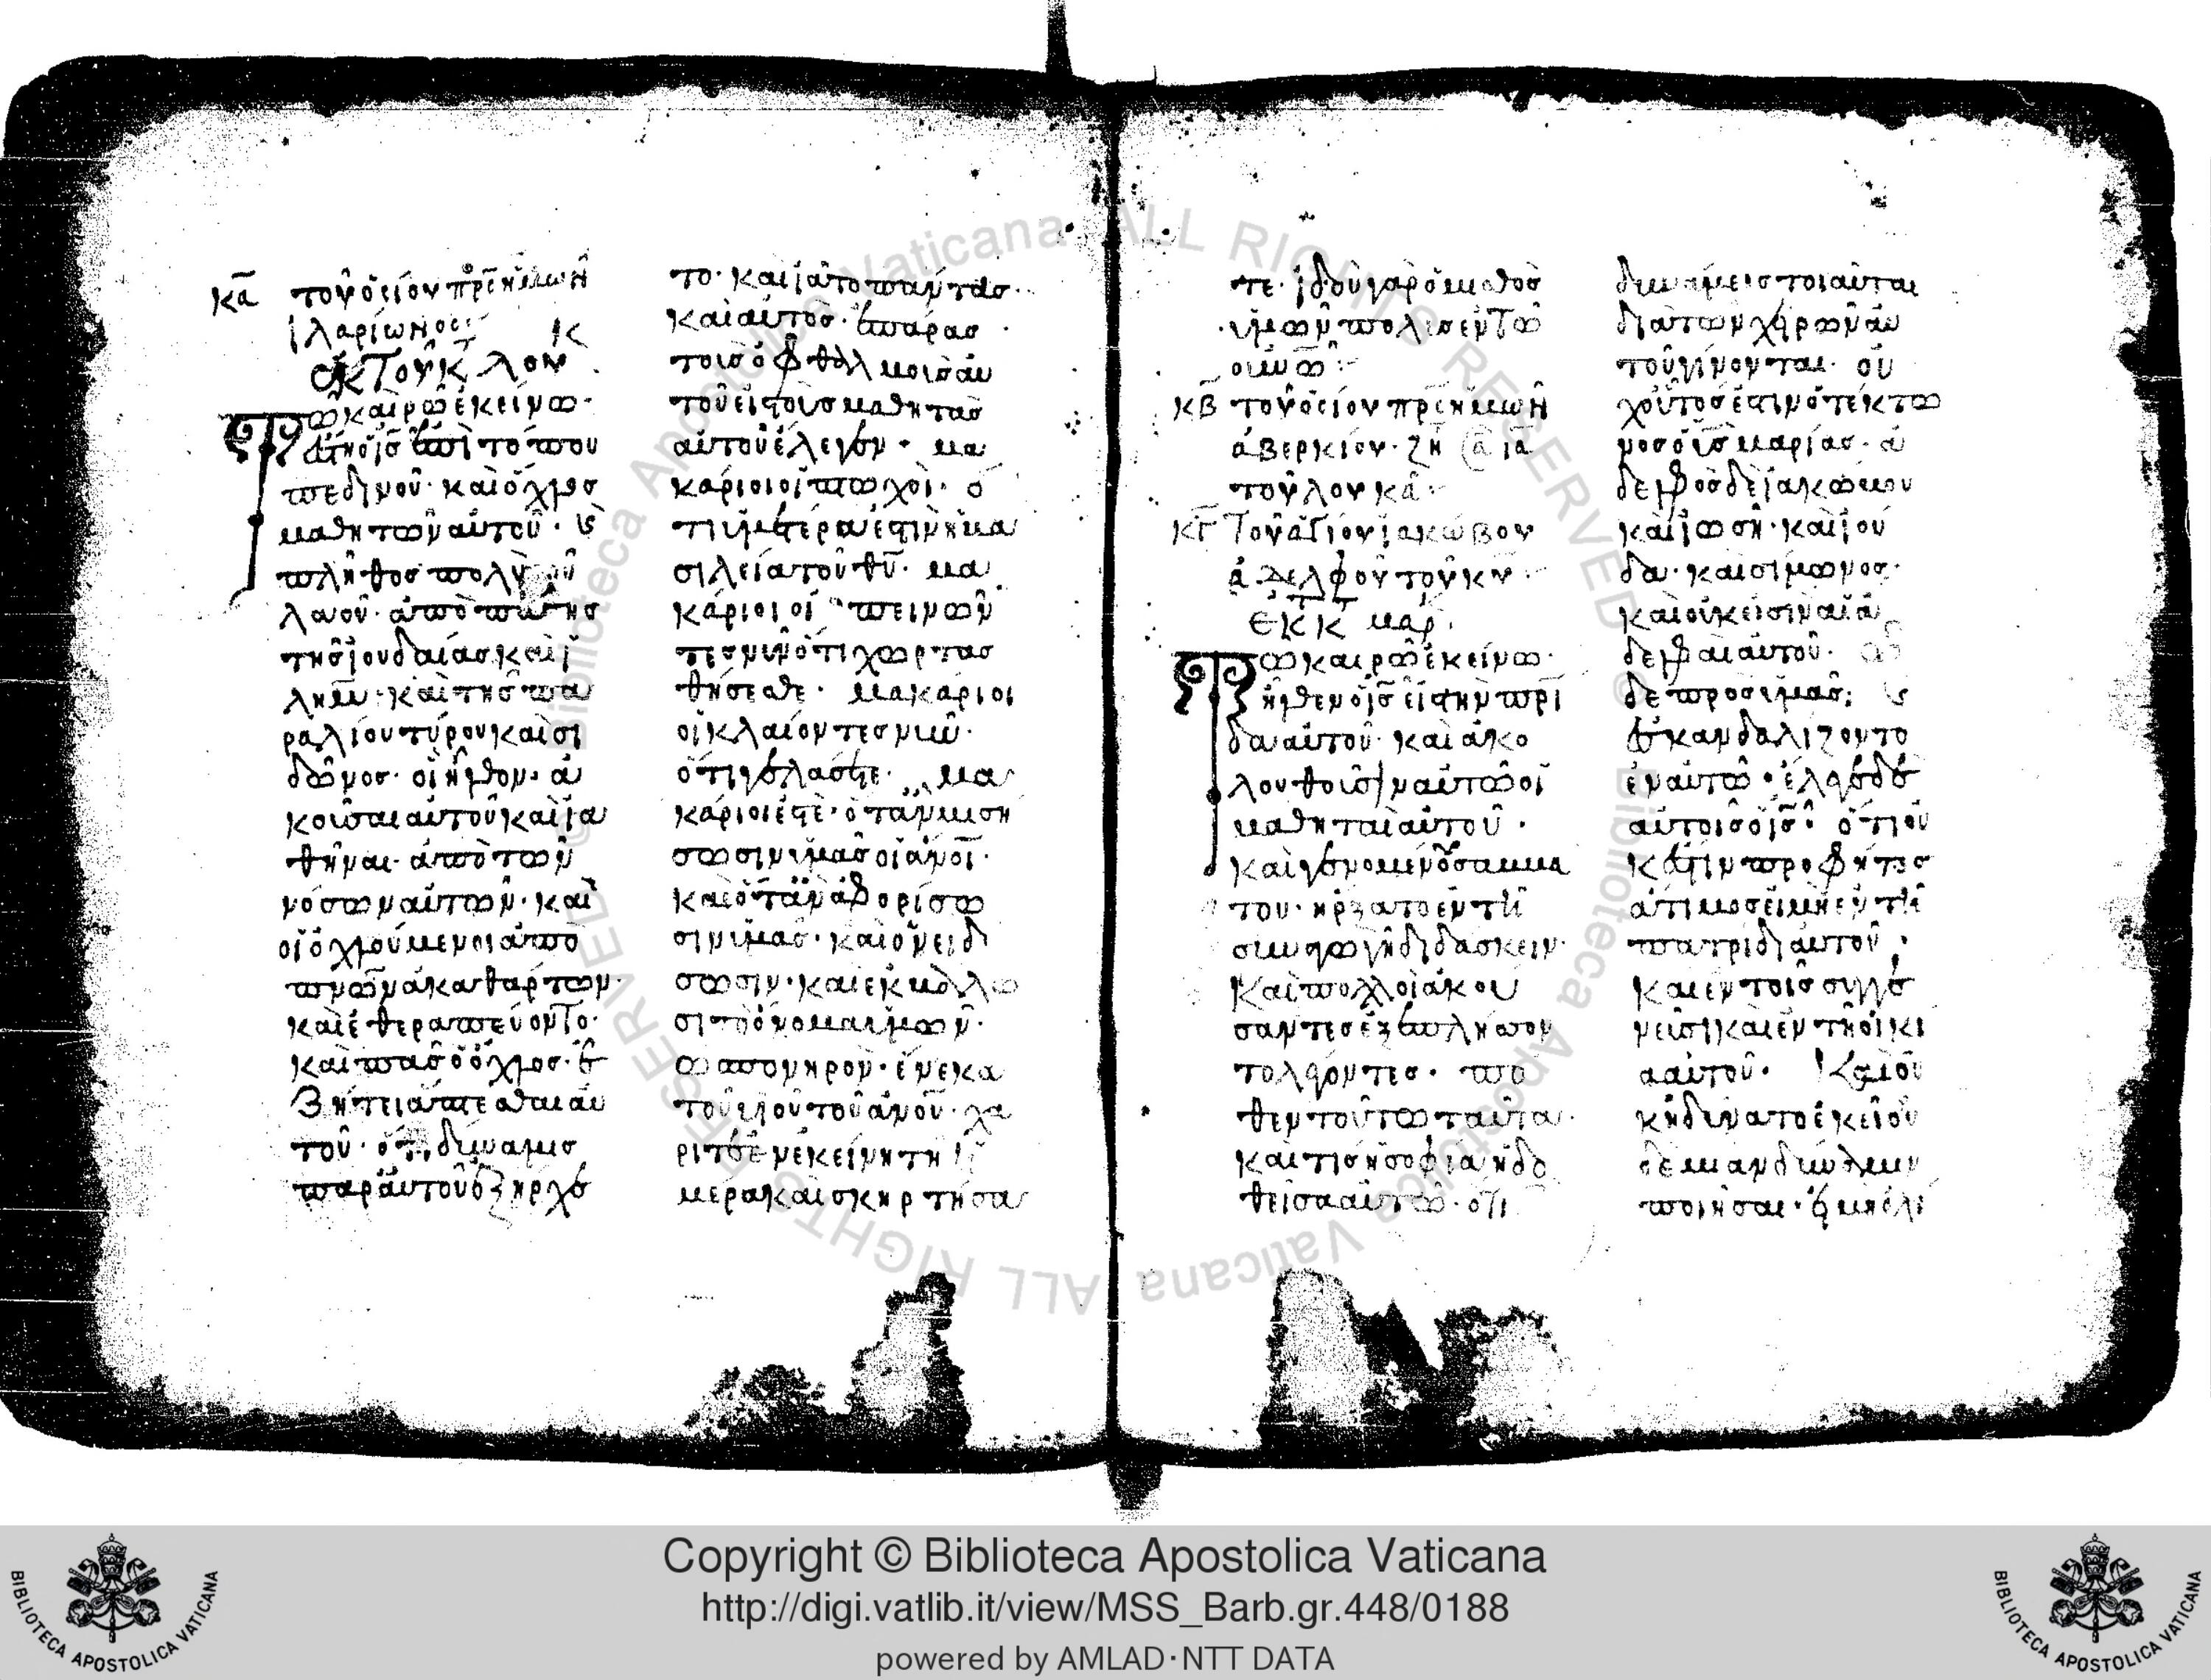 κα τοῦ ὁσίου πρς ἡμῶν
ἱλαρίωνος
ἐκ τοῦ κτ λουκ
Τῶ καιρῶ ἐκείνω·
ἔστη ὁ ις ἐπὶ τόπου
πεδινοῦ· καὶ ὄχλος
μαθητῶν αὐτοῦ· κ
πλῆθος πολὺ τοῦ
λαοῦ· ἀπὸ πάσης
τῆς ἰουδαίας καὶ ἱ
λημ· καὶ τῆς πα
ραλίου τύρου καὶ σι
δῶνος· οἳ ἦλθον ἀ
κοῦσαι αὐτοῦ καὶ ἰα
θῆναι· ἀπὸ τῶν
νόσων αὐτῶν· καὶ
οἱ ὀχλούμενοι ἀπὸ
πνων ἀκαθάρτων·
καὶ ἐθεραπεύοντο·
καὶ πᾶς ὁ ὄχλος· ἐ
ζήτει ἅπτεσθαι αὐ
τοῦ· ὅτι δύναμις
παρ αὐτοῦ ἐξήρχε
το· καὶ ἰᾶτο πάντας·
καὶ αὐτὸς· ἐπάρας
τοὺς ὀφθαλμοὺς αὐ
τοῦ εἰς τοὺς μαθητὰς
αὐτοῦ ἔλεγεν· μα
κάριοι οἱ πτωχοὶ· ὅ
τι ὑμετέρα ἐστὶν ἡ βα
σιλεία τοῦ θυ· μα
κάριοι οἱ πεινῶν
τες νῦν ὅτι χορτασ
θήσεσθε· μακάριοι
οἱ κλαίοντες νῦν·
ὅτι γελάσετε· μα
κάριοί ἐστε· ὅταν μισή
σωσιν ὑμᾶς οἱ ανοι·
καὶ ὅταν ἀφορίσω
σιν ὑμᾶς· καὶ ὀνειδί
σωσιν· καὶ ἐκβάλω
σι τὸ ὄνομα ὑμῶν·
ὡς πονηρὸν· ἕνεκα
τοῦ υἱοῦ τοῦ ανου· χά
ρητε ἐν ἐκείνη τῆ ἡ
μέρα καὶ σκιρτήσα
τε· ἰδοὺ γὰρ ὁ μισθὸς
ὑμῶν πολὺς ἐν τῶ
ουνω
κβ τοῦ ὁσίου πρς ἡμῶν
ἀβερκίου· ζη
τοῦ λουκᾶ
κγ τοῦ ἁγίου ἰακώβου
ἀδελφοῦ τοῦ κυ
ἐκ τ κτ μαρ
Τῶ καιρῶ ἐκείνω·
ἦλθεν ὁ ις εἰς τὴν πατρί
δα αὐτοῦ· καὶ ἀκο
λουθοῦσιν αὐτῶ οἱ
μαθηταὶ αὐτοῦ·
καὶ γενομένου σαββά
του· ἤρξατο ἐν τῆ
συναγωγῆ διδάσκειν·
καὶ πολλοὶ ἀκού
σαντες ἐξεπλήσσον
το λέγοντες· πό
θεν τούτω ταῦτα·
καὶ τίς ἡ σοφία ἡ δο
θεῖσα αὐτῶ· ὅτι
δυνάμεις τοιαῦται
διὰ τῶν χειρῶν αὐ
τοῦ γίνονται· οὐ
χ οὗτός ἐστιν ὁ τέκτω
νος ὁ υς μαρίας· ἀ
δελφὸς δὲ ἰακώβου
καὶ ἰωσῆ· καὶ ἰού
δα· καὶ σίμωνος·
καὶ οὐκ εἰσὶν αἱ ἀ
δελφαὶ αὐτοῦ· ὧ
δε πρὸς ὑμᾶς; κ
ἐσκανδαλίζοντο
ἐν αὐτῶ· ἔλεγε δὲ
αὐτοῖς ὁ ις· ὅτι οὐ
κ ἔστιν προφήτης
ἄτιμος εἰ μὴ ἐν τῆ
πατρίδι αὐτοῦ·
καὶ ἐν τοῖς συγγε
νεῦσι καὶ ἐν τῆ οἰκί
α αὐτοῦ· καὶ οὐ
κ ἠδύνατο ἐκεῖ οὐ
δεμίαν δύναμιν
ποιῆσαι· εἰ μὴ ὀλί
Copyright © Biblioteca Apostolica Vaticana
http://digi.vatlib.it/view/MSS_Barb.gr.448/0188
powered by AMLAD·NTT DATA
BIBLIOTECA APOSTOLICA VATICANA
BIBLIOTECA APOSTOLICA VATICANA